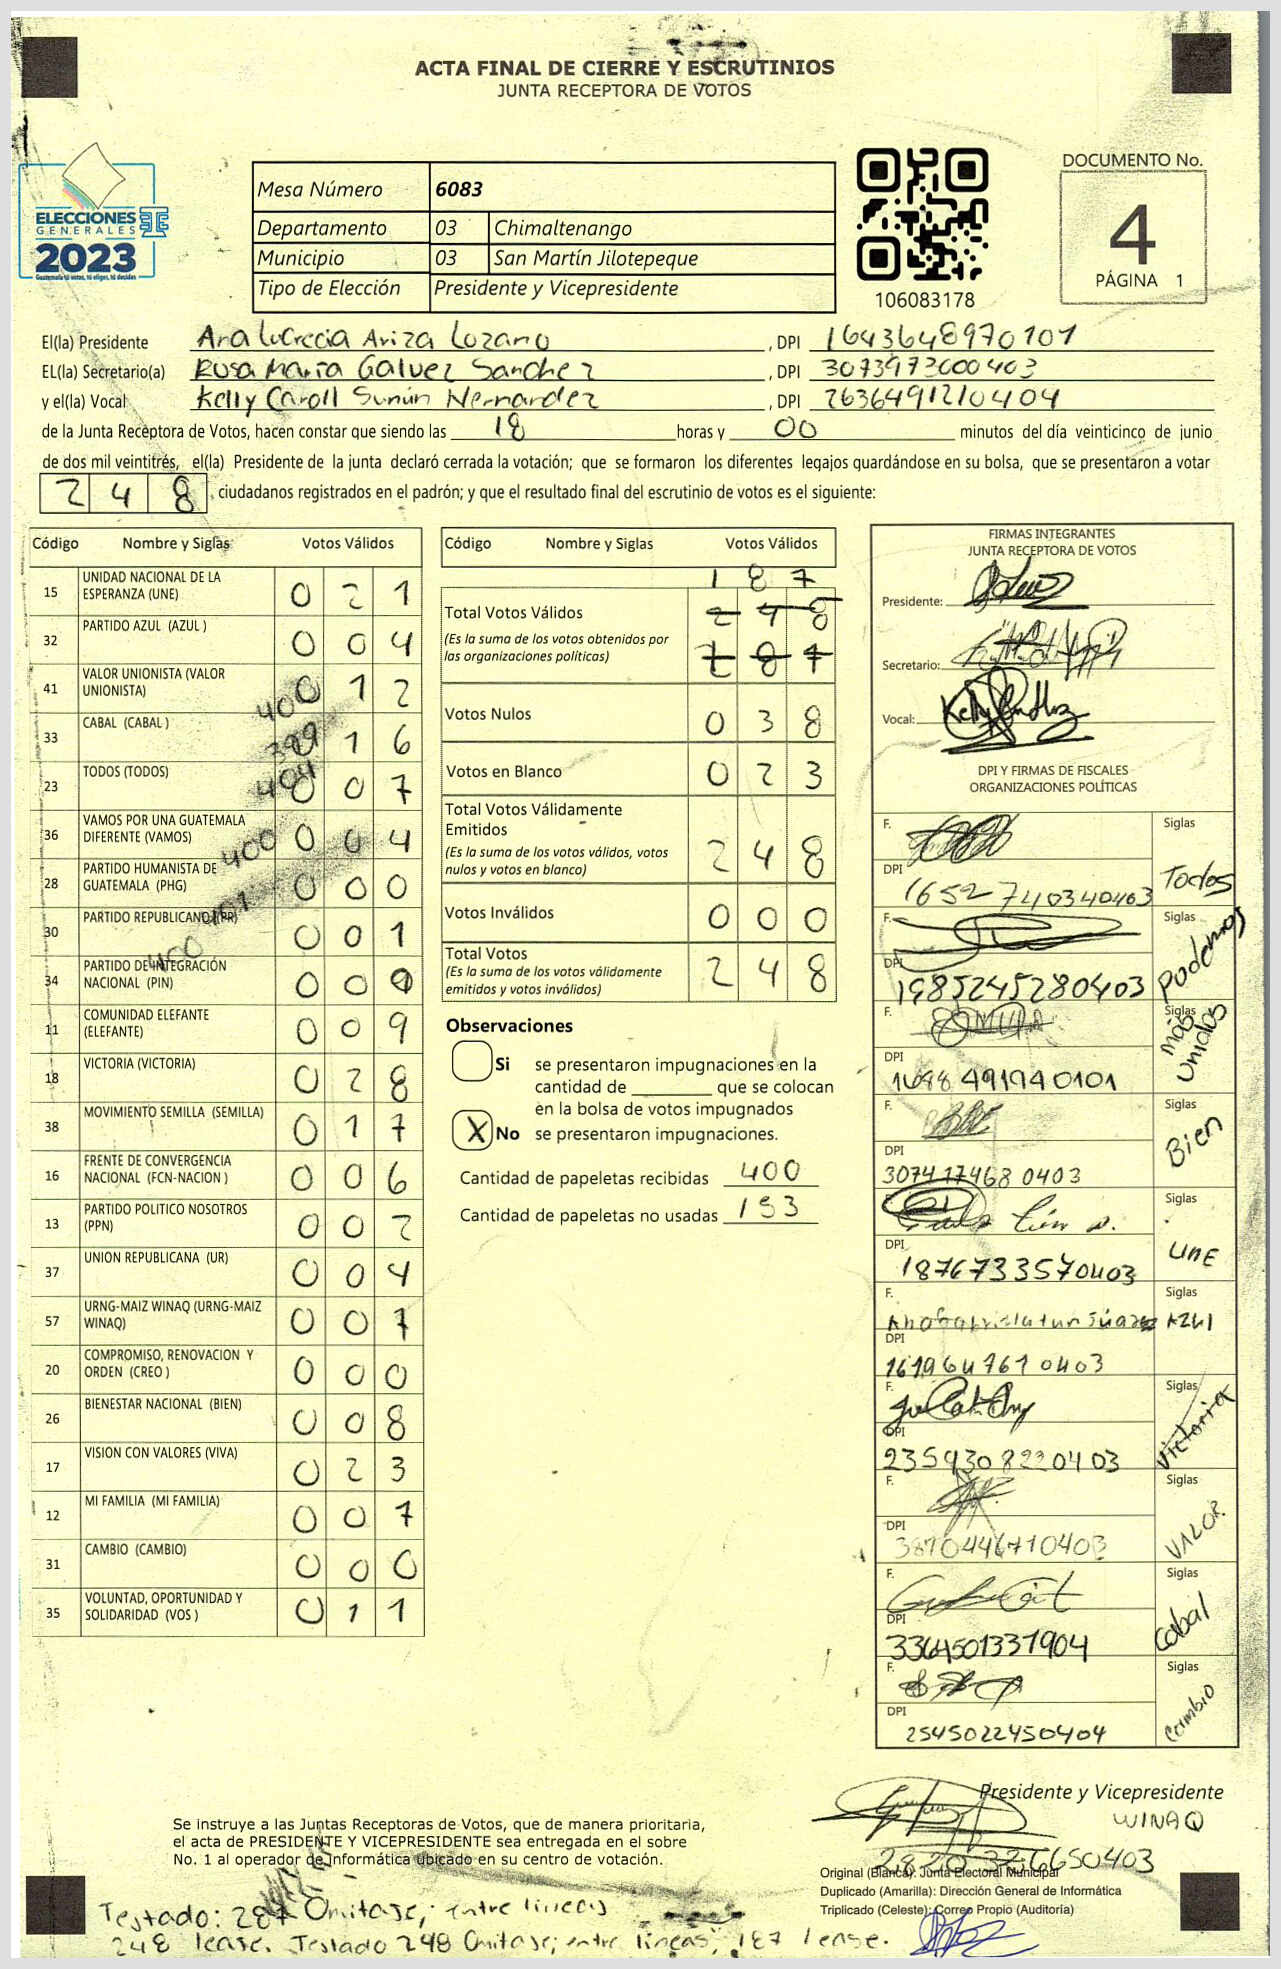 ACTA FINAL DE CIERRE Y ESCRUTINIOS
JUNTA RECEPTORA DE VOTOS
ELECCIONES
GENERALES
2023
Guatemala tú votas, tú eliges, tú decides
Mesa Número 6083
Departamento 03 Chimaltenango
Municipio 03 San Martín Jilotepeque
Tipo de Elección Presidente y Vicepresidente
106083178
DOCUMENTO No.
4
PÁGINA 1
El(la) Presidente Ana Lucrecia Ariza Lozano, DPI 1643648970101
EL(la) Secretario(a) Rosa María Galvez Sanchez, DPI 3073973600403
y el(la) Vocal Kelly Caroll Sunún Hernandez, DPI 2636491210404
de la Junta Receptora de Votos, hacen constar que siendo las 18 horas y 00 minutos del día veinticinco de junio
de dos mil veintitrés, el(la) Presidente de la junta declaró cerrada la votación; que se formaron los diferentes legajos guardándose en su bolsa, que se presentaron a votar
248 ciudadanos registrados en el padrón; y que el resultado final del escrutinio de votos es el siguiente:
Código Nombre y Siglas Votos Válidos
15 UNIDAD NACIONAL DE LA ESPERANZA (UNE) 0 2 1
32 PARTIDO AZUL (AZUL ) 0 0 4
41 VALOR UNIONISTA (VALOR UNIONISTA) 0 1 2
400
33 CABAL (CABAL ) 0 1 6
399
23 TODOS (TODOS) 0 0 7
404
36 VAMOS POR UNA GUATEMALA DIFERENTE (VAMOS) 0 0 4
400
28 PARTIDO HUMANISTA DE GUATEMALA (PHG) 0 0 0
30 PARTIDO REPUBLICANO (PR) 0 0 1
400
34 PARTIDO DE INTEGRACIÓN NACIONAL (PIN) 0 0
11 COMUNIDAD ELEFANTE (ELEFANTE) 0 0 9
18 VICTORIA (VICTORIA) 0 2 8
38 MOVIMIENTO SEMILLA (SEMILLA) 0 1 7
16 FRENTE DE CONVERGENCIA NACIONAL (FCN-NACION ) 0 0 6
13 PARTIDO POLITICO NOSOTROS (PPN) 0 0 2
37 UNION REPUBLICANA (UR) 0 0 4
57 URNG-MAIZ WINAQ (URNG-MAIZ WINAQ) 0 0 7
20 COMPROMISO, RENOVACION Y ORDEN (CREO ) 0 0 0
26 BIENESTAR NACIONAL (BIEN) 0 0 8
17 VISION CON VALORES (VIVA) 0 2 3
12 MI FAMILIA (MI FAMILIA) 0 0 7
31 CAMBIO (CAMBIO) 0 0 0
35 VOLUNTAD, OPORTUNIDAD Y SOLIDARIDAD (VOS ) 0 1 1
Código Nombre y Siglas Votos Válidos
1 8 7
Total Votos Válidos 2 4 8
(Es la suma de los votos obtenidos por
las organizaciones políticas) 8 7
Votos Nulos 0 3 8
Votos en Blanco 0 2 3
Total Votos Válidamente
Emitidos
(Es la suma de los votos válidos, votos
nulos y votos en blanco) 2 4 8
Votos Inválidos 0 0 0
Total Votos
(Es la suma de los votos válidamente
emitidos y votos inválidos) 2 4 8
Observaciones
Si se presentaron impugnaciones en la
cantidad de ________ que se colocan
en la bolsa de votos impugnados
X No se presentaron impugnaciones.
Cantidad de papeletas recibidas 400
Cantidad de papeletas no usadas 153
FIRMAS INTEGRANTES
JUNTA RECEPTORA DE VOTOS
Presidente:
Secretario:
Vocal:
DPI Y FIRMAS DE FISCALES
ORGANIZACIONES POLÍTICAS
F. Siglas
DPI 1652740340403 Todos
F. Siglas
DPI 1985245280403 Podemos
F. Siglas
DPI 1698491940101 más Unidos
F. Siglas
DPI 3074174680403 Bien
F. Siglas
DPI 1876733570403 UNE
F. Siglas
DPI 1619647610403 AZUL
F. Siglas
DPI 2359308220403 Victoria
F. Siglas
DPI 3870446710403 VALOR.
F. Siglas
DPI 3364501331904 Cabal
F. Siglas
DPI 2545022450404 Cambio
Presidente y Vicepresidente
WINAQ
Se instruye a las Juntas Receptoras de Votos, que de manera prioritaria,
el acta de PRESIDENTE Y VICEPRESIDENTE sea entregada en el sobre
No. 1 al operador de Informática ubicado en su centro de votación.
Original (Blanca): Junta Electoral Municipal
Duplicado (Amarilla): Dirección General de Informática
Triplicado (Celeste): Correo Propio (Auditoría)
Testado: 287 Omitase; entre lineas
248 lease. Testado 248 Omitase; entre lineas; 187 lease.